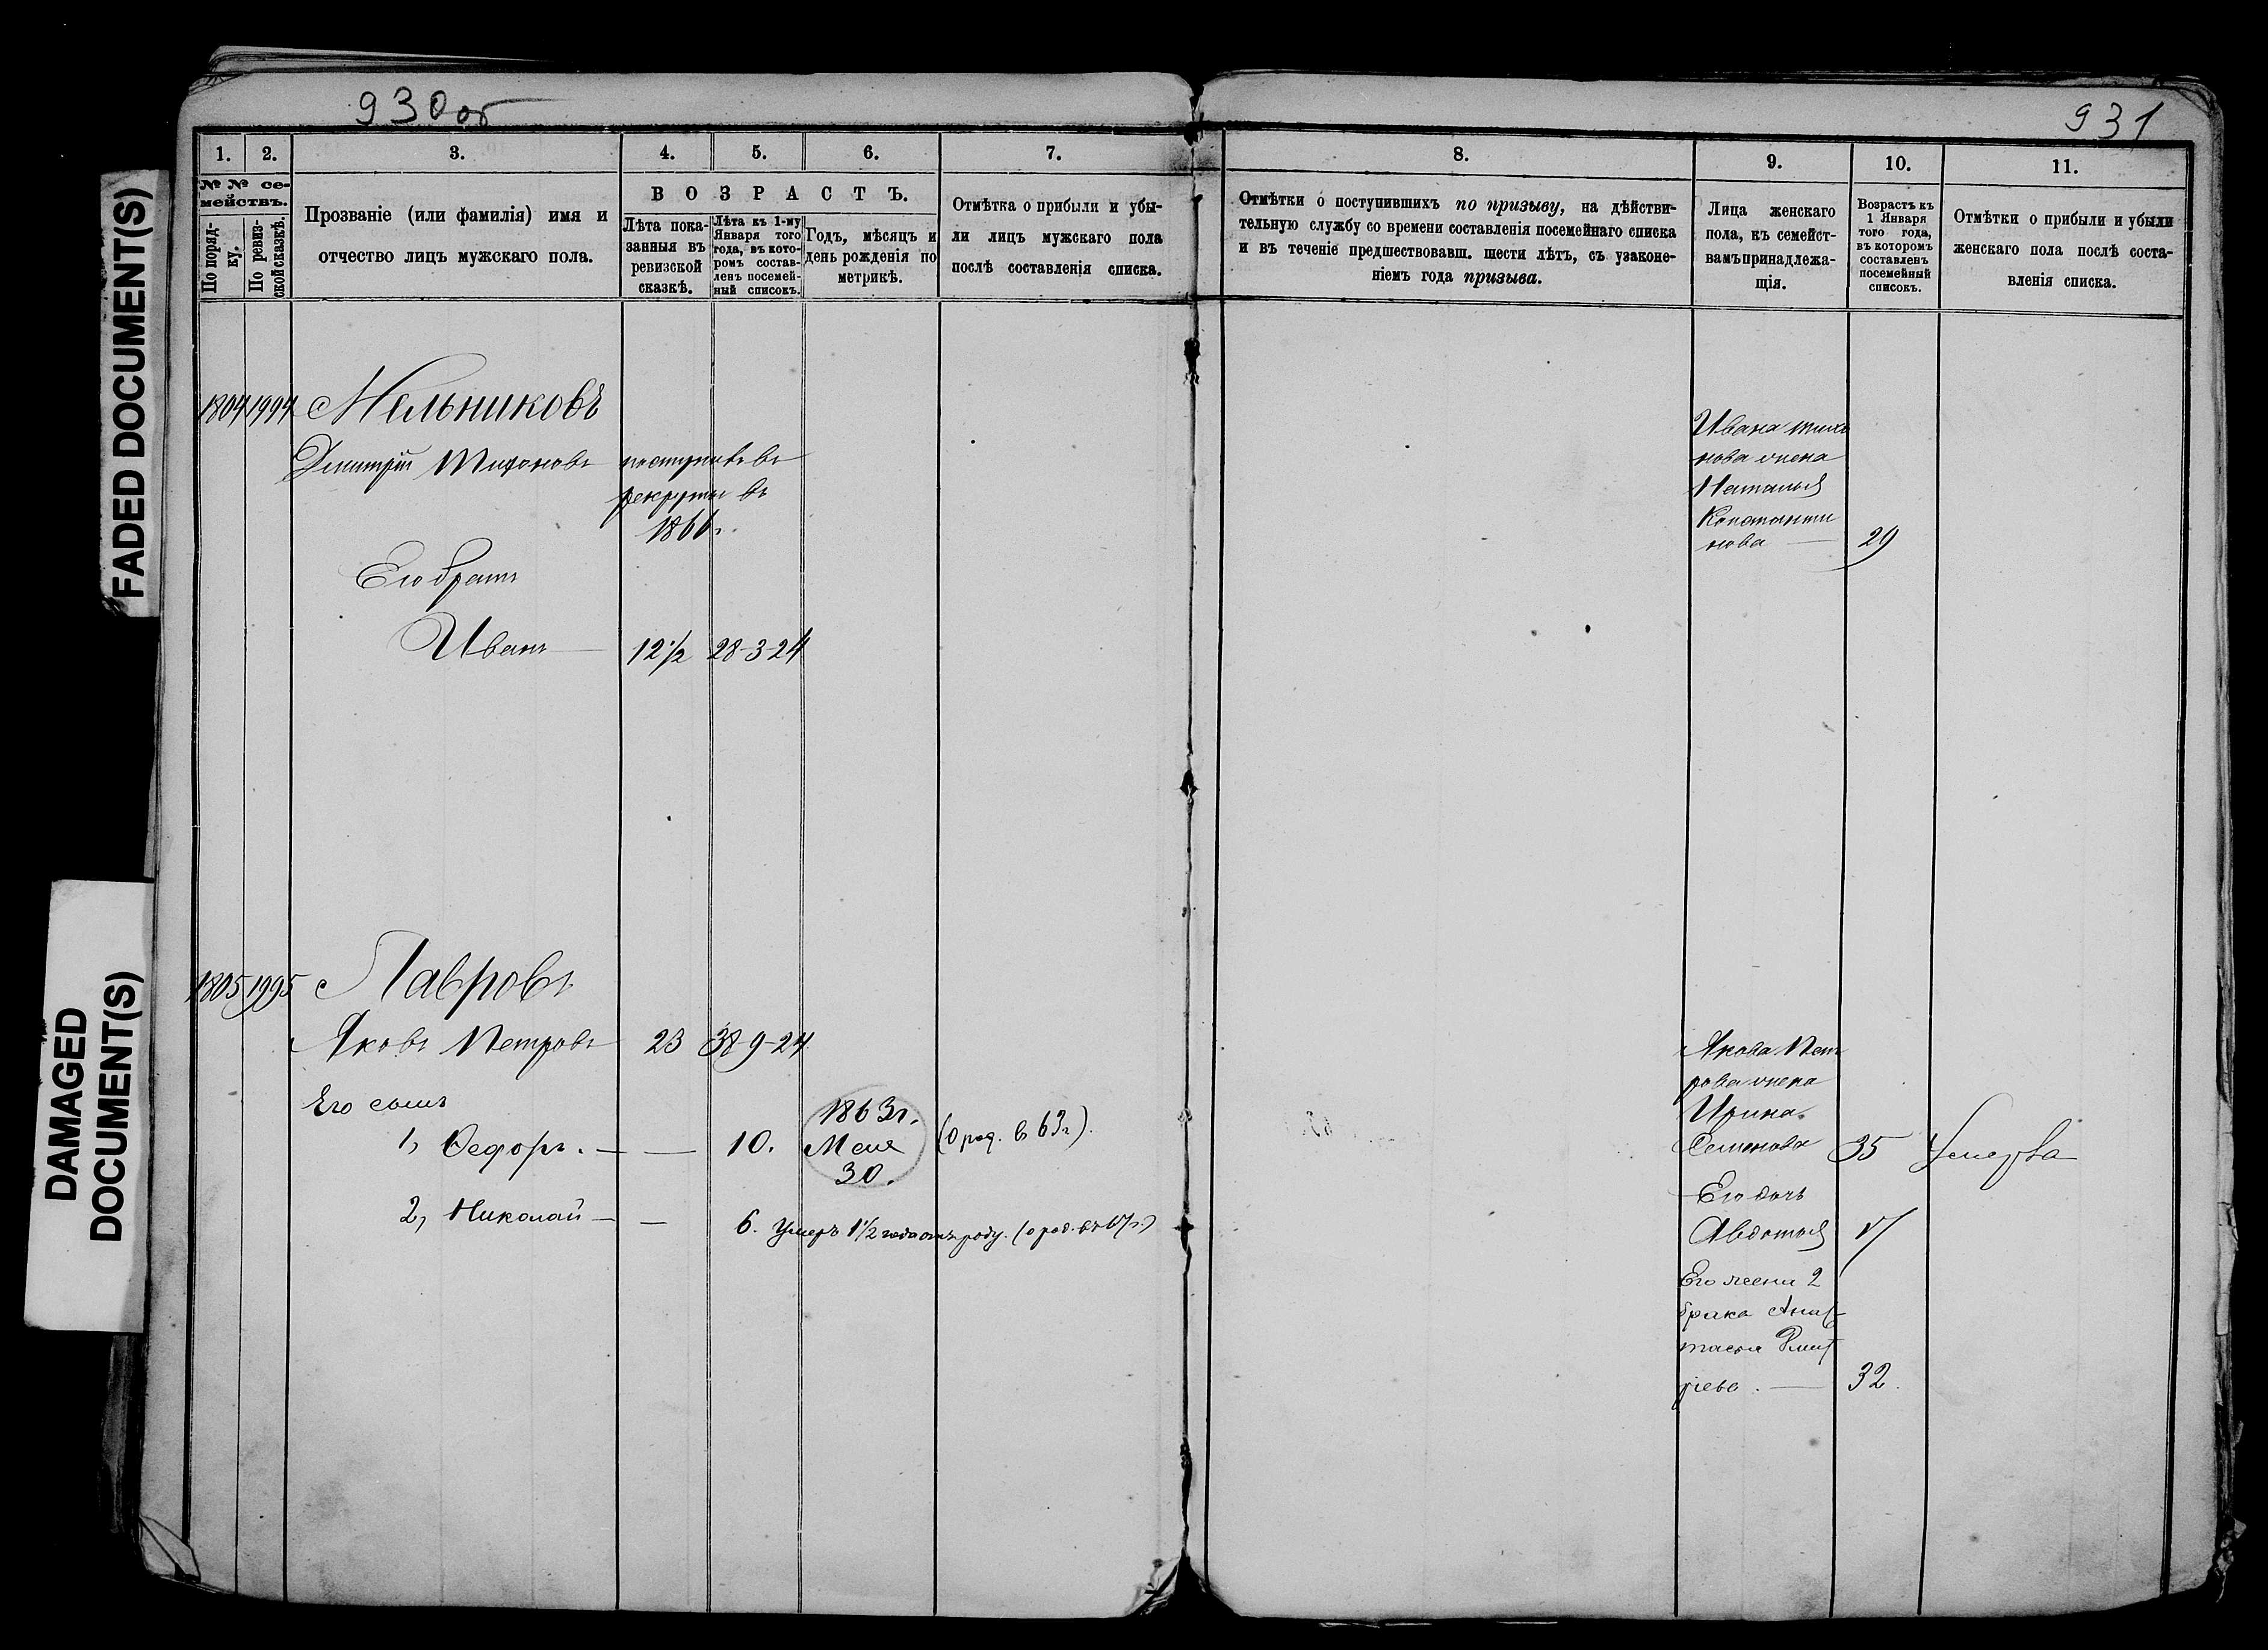 930 об
931
FADED DOCUMENT(S)
DAMAGED
DOCUMENT(S)
1.
2.
3.
4.
5.
6.
7.
8.
9.
10.
11.
№ № се-
мействъ.
По поряд-
ку.
По ревиз-
ской сказкѣ.
Прозваніе (или фамилія) имя и
отчество лицъ мужскаго пола.
ВОЗРАСТЪ.
Лѣта пока-
занныя въ
ревизской
сказкѣ.
Лѣта къ 1-му
Января того
года, въ кото-
ромъ состав-
ленъ посемей-
ный списокъ.
Годъ, мѣсяцъ и
день рожденія по
метрикѣ.
Отмѣтка о прибыли и убы-
ли лицъ мужскаго пола
послѣ составленія списка.
Отмѣтки о поступившихъ по призыву, на дѣйстви-
тельную службу со времени составленія посемейнаго списка
и въ теченіе предшествовавш. шести лѣтъ, съ узаконе-
ніемъ года призыва.
Лица женскаго
пола, къ семейст-
вамъ принадлежа-
щія.
Возрастъ къ
1 Января
того года,
въ которомъ
составленъ
посемейный
списокъ.
Отмѣтки о прибыли и убыли
женскаго пола послѣ соста-
вленія списка.
1804 1994 Мельниковъ
Дмитрій Тихоновъ поступивъ въ
рекруты въ
1866г.
Его братъ
Иванъ — 12 1/2 28-3-24
Ивана Тихо
нова жена
Наталья
Константи
нова — 29
1805 1995 Лавровъ
Яковъ Петровъ 23 38-9-24
Его сынъ
1, Ѳедоръ. — — 10. 1863г. Мая 30. (О род. в 63г.)
2, Николай — — 6. Умеръ 1 1/2 года отъ роду. (о род. въ 67г.)
Якова Пет
рова жена
Ирина
Семенова 35 Умерла
Его дочь
Авдотья 17
Его жена 2
брака Анас
тасья Дмит
ріева. — 32.